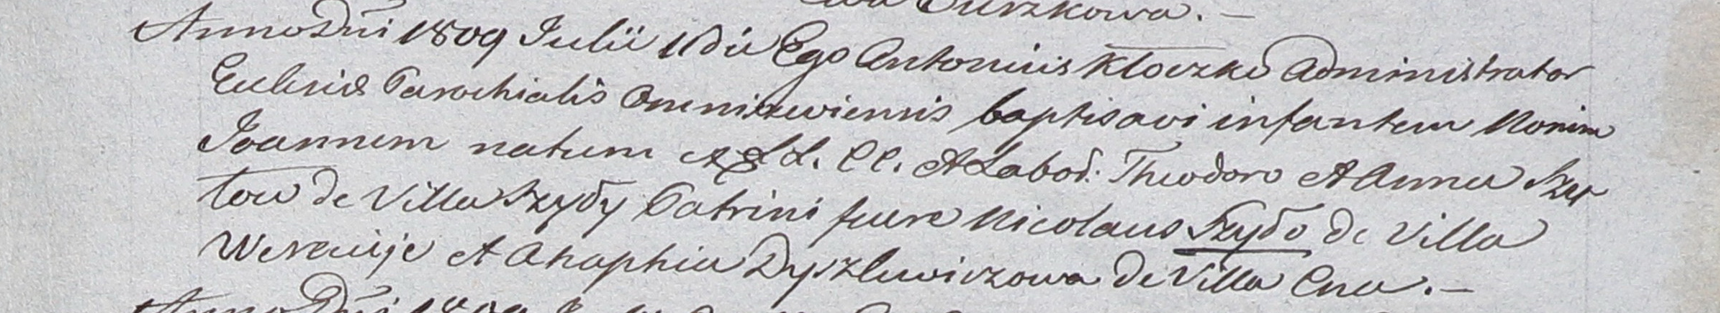 Turzkowa. —
Anno Dni 1809 Julii 11 die Ego Antonius Kłoczko Administrator
Ecclesiæ Parochialis Omniszewiensis baptisavi infantem Nomine
Joannem natum ex LL. CC. et Labod. Theodoro et Anna Szu
tow de Villa Szydy Patrini fuere Nicolaus Szydo de Villa
et Ahaphia Dyszlewiczowa de Villa Cna. —
Anno Dni 1809